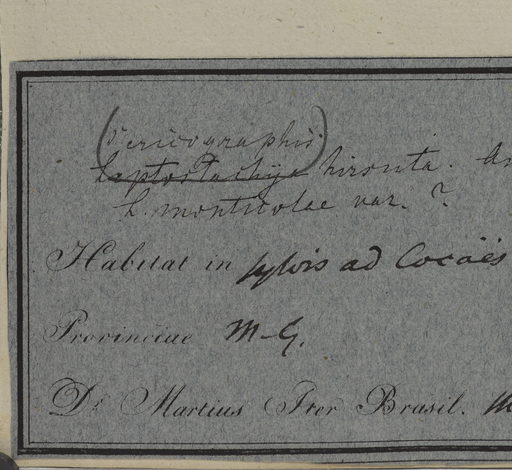 (Sericographis)
Leptostachya hirsuta. An
L. monticolae var. ?
Habitat in sylvis ad Cocäes
Provinciae M-G.
Dr. Martius Iter Brasil. M